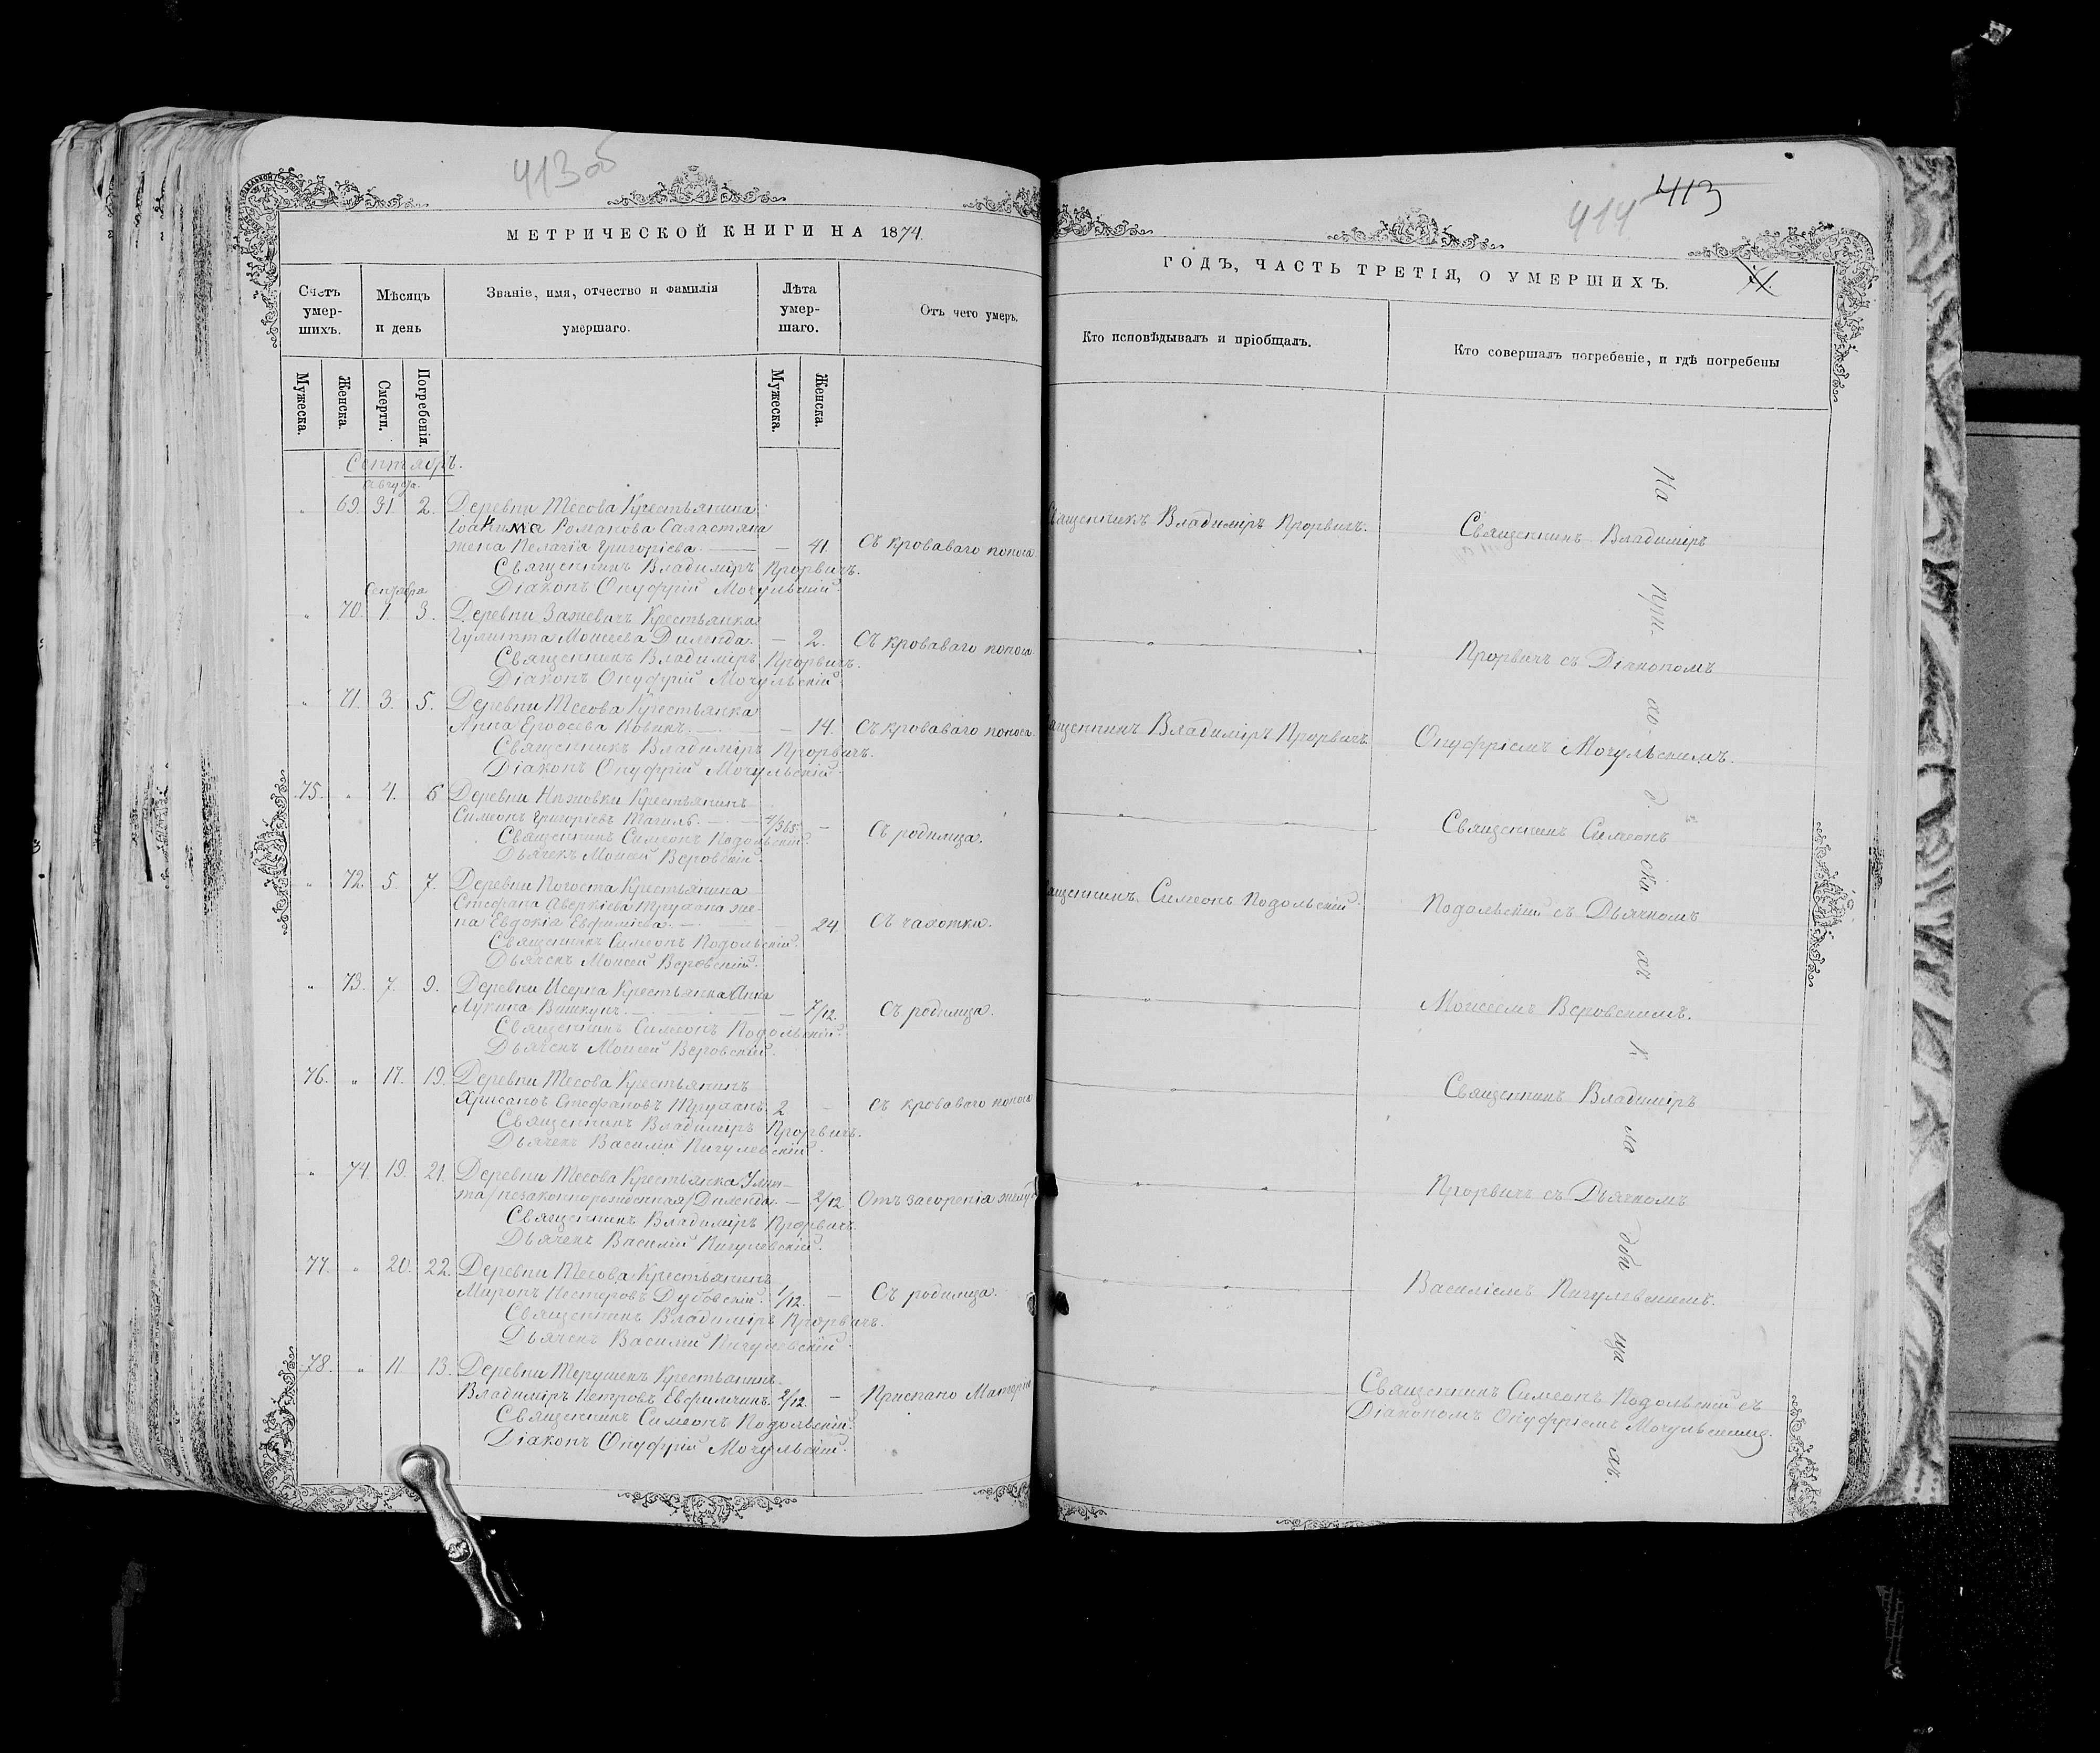 413 об
МЕТРИЧЕСКОЙ КНИГИ НА 1874
Счетъ умер-шихъ.
Мѣсяцъ и день
Званіе, имя, отчество и фамилія умершаго.
Лѣта умер-шаго.
Отъ чего умеръ.
Мужеска.
Женска.
Смерти.
Погребенія.
Мужеска.
Женска.
Сентябрь.
Августа.
69. 31. 2. Деревни Тесова Крестьянина
Іоакима Романова Саластяна
жена Пелагія Григоріева — 41. Съ кроваваго поноса
Священникъ Владиміръ Прорвичъ.
Діаконъ Онуфрій Мочульскій.
Сентября
70. 1 3. Деревни Зажевичъ Крестьянка
Іулитта Моисеева Диленда. — 2. Съ кроваваго поноса
Священникъ Владиміръ Прорвичъ.
Діаконъ Онуфрій Мочульскій
71. 3. 5. Деревни Тесова Крестьянка
Анна Новикъ. — 14. Съ кроваваго поноса.
Священникъ Владиміръ Прорвичъ.
Діаконъ Онуфрій Мочульскій.
75. " 4. 6 Деревни Нѣжовки Крестьянинъ
Симеонъ Григоріевъ — 4/365. — Съ родимца.
Священникъ Симеонъ Подольскій.
Дьячекъ Моисей Веровскій.
" 72. 5. 7. Деревни Погоста Крестьянина
Стефана Аверкіева Трухана же-
на Евдокія Евфиміева. — 24. Съ чахотки.
Священникъ Симеонъ Подольскій.
Дьячекъ Моисей Веровскій.
" 73. 7. 9. Деревни Исерна Крестьянка Анна
Лукина Вишкунъ. — 7/12. Съ родимца.
Священникъ Симеонъ Подольскій.
Дьячекъ Моисей Веровскій.
76. " 17. 19. Деревни Тесова Крестьянинъ
Хрисанѳъ Стефановъ Труханъ. 2 — Съ кроваваго поноса
Священникъ Владиміръ Прорвичъ.
Дьячекъ Василій Пигулевскій.
" 74 19 21. Деревни Тесова Крестьянка Улит-
та /незаконнорожденная/ Диленда. — 2/12 Отъ засоренія желуд
Священникъ Владиміръ Прорвичъ.
Дьячекъ Василій Пигулевскій.
77. " 20. 22. Деревни Тесова Крестьянинъ
Миронъ Несторовъ Дубовскій. 1/12. — Съ родимца.
Священникъ Владиміръ Прорвичъ.
Дьячекъ Василій Пигулевскій
78. " 11 13. Деревни Терушекъ Крестьянинъ
Владиміръ Петровъ Евфимчикъ. 2/12. — Приспано Матерью
Священникъ Симеонъ Подольскій.
Діаконъ Онуфрій Мочульскій.
414 413
ГОДЪ, ЧАСТЬ ТРЕТІЯ, О УМЕРШИХЪ.
Кто исповѣдывалъ и пріобщалъ.
Кто совершалъ погребеніе, и гдѣ погребены
Священникъ Владиміръ Прорвичъ.
Священникъ Владиміръ
Прорвичъ съ Діакономъ
Священникъ Владиміръ Прорвичъ
Онуфріемъ Мочульскимъ.
Священникъ Симеонъ
Священникъ Симеонъ Подольскій
Подольскій съ Дьячкомъ
Моисеемъ Веровскимъ.
Священникъ Владиміръ
Прорвичъ съ Дьячкомъ
Василіемъ Пигулевскимъ.
Священникъ Симеонъ Подольскій съ
Діакономъ Онуфріемъ Мочульскимъ.
На при- хо- д- ски- хъ к- ла- дби- ща- хъ.